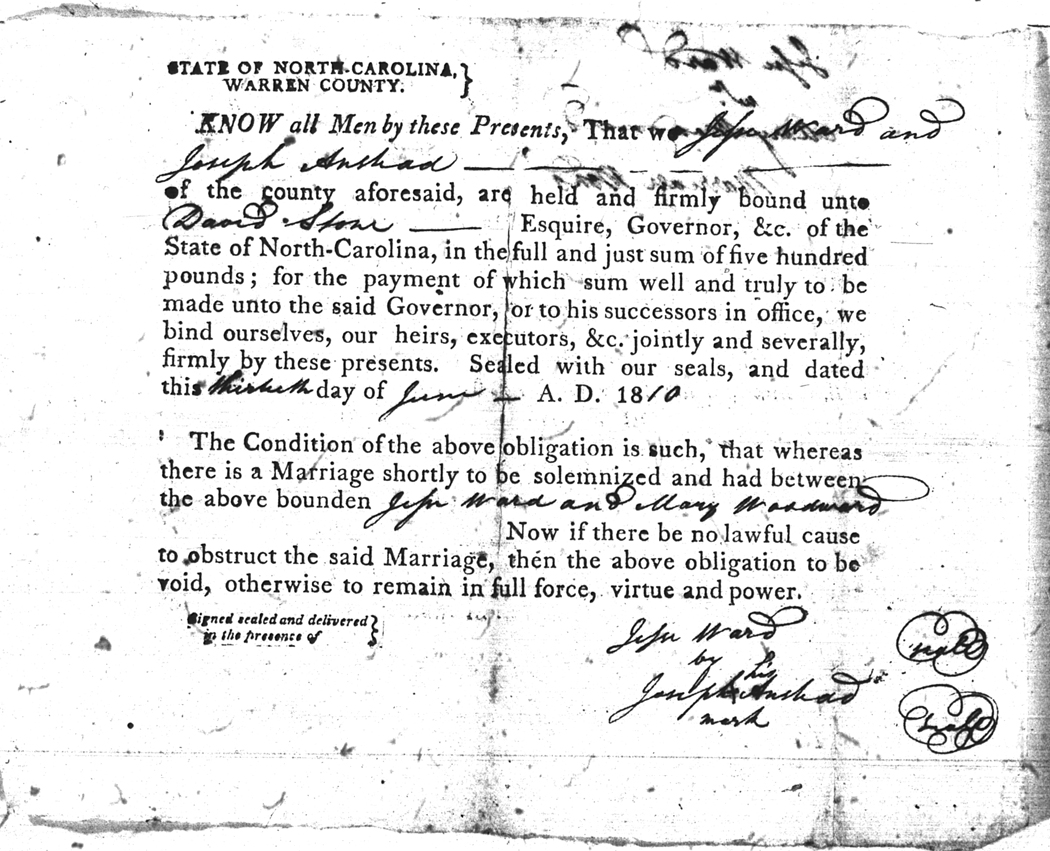 STATE OF NORTH-CAROLINA,
WARREN COUNTY.
KNOW all Men by these Presents, That we Jesse Ward and
Joseph Anshad
of the county aforesaid, are held and firmly bound unto
David Stone Esquire, Governor, &c. of the
State of North-Carolina, in the full and just sum of five hundred
pounds; for the payment of which sum well and truly to be
made unto the said Governor, or to his successors in office, we
bind ourselves, our heirs, executors, &c. jointly and severally,
firmly by these presents. Sealed with our seals, and dated
this thirtieth day of June A. D. 1810
The Condition of the above obligation is such, that whereas
there is a Marriage shortly to be solemnized and had between
the above bounden Jesse Ward and Mary Woodward
Now if there be no lawful cause
to obstruct the said Marriage, then the above obligation to be
void, otherwise to remain in full force, virtue and power.
Signed sealed and delivered
in the presence of
Jesse Ward
by his
Joseph Anshad
mark
seal
seal